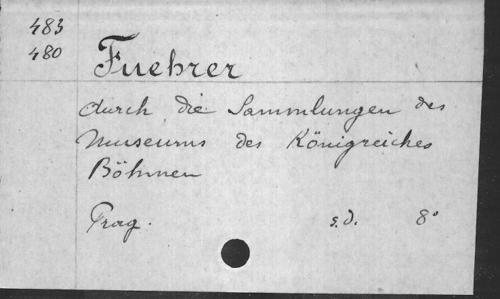 483
480
Fuehrer
durch die Sammlungen des
Museums des Königreiches
Böhmen
Prag. s.d. 8°